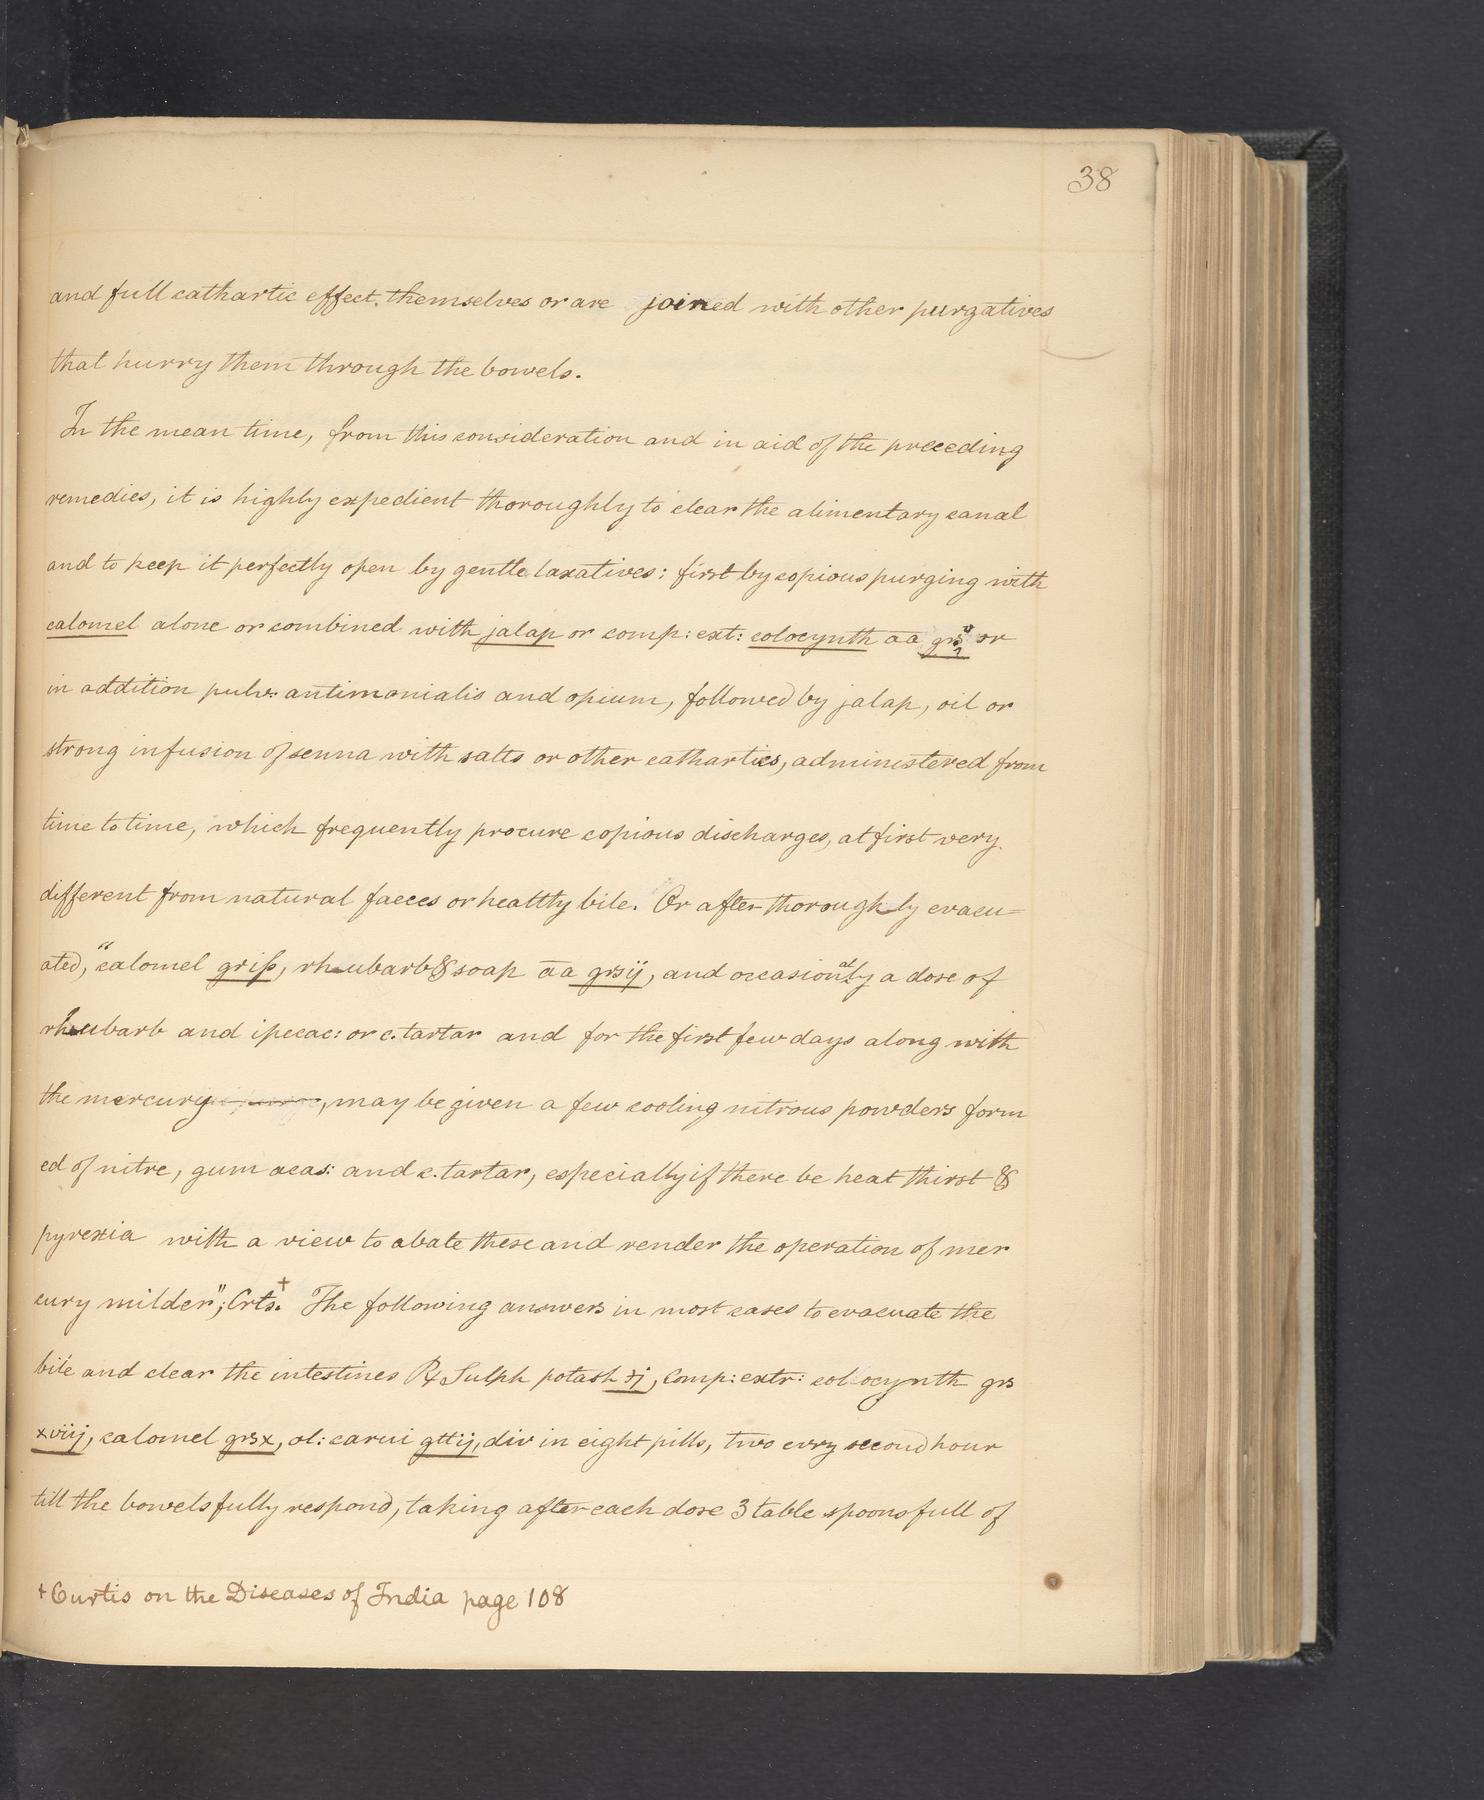 38
and full cathartic effect. themselves or are joined with other purgatives
that hurry them through the bowels.
In the mean time, from this consideration and in aid of the preceeding
remedies, it is highly expedient thoroughly to clear the alimentary canal
and to keep it perfectly open by gentle laxatives: first by copious purging with
calomel alone or combined with jalap or comp: ext: colocynth aa grs v or
in addition pulv: antimonialis and opium, followed by jalap, oil or
strong infusion of senna with salts or other cathartics, administered from
time to time, which frequently procure copious discharges, at first very
different from natural faeces or healthy bile. Or after thoroughly evacu=
ated, "calomel griſs, rhubarb & soap āa grsij, and occasionally a dose of
rhubarb and ipecac: or c. tartar and for the first few days along with
the mercury, may be given a few cooling nitrous powders form
ed of nitre, gum acas: and c. tartar, especially if there be heat thirst &
pyrexia with a view to abate these and render the operation of mer
cury milder"; Crts.† The following answers in most cases to evacuate the
bile and clear the intestines ℞ Sulph potash ʒj, Comp: extr: colocynth grs
xviij, calomel grsx, ol: carui gttij, div in eight pills, two evry second hour
till the bowels fully respond, taking after each dose 3 table spoonsfull of
† Curtis on the Diseases of India page 108